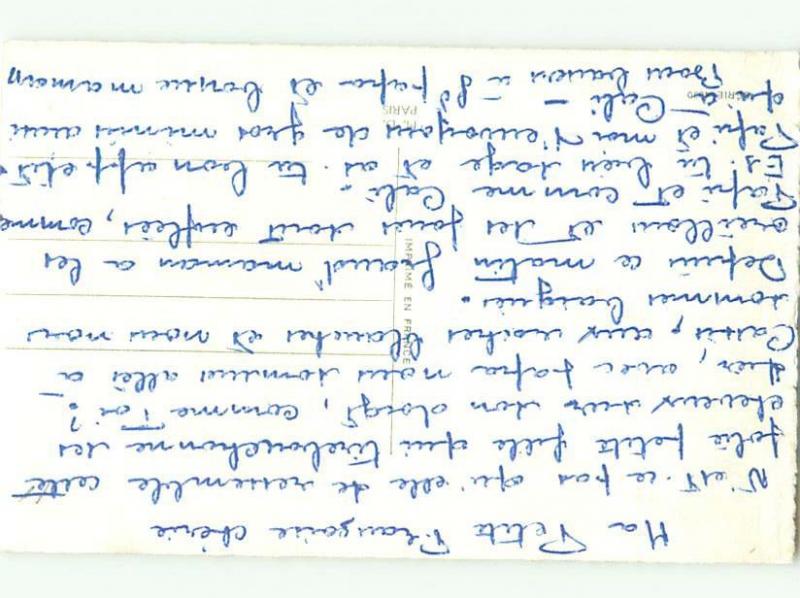 Ma Petite Françoise chérie
N'est-ce pas qu'elle te ressemble cette
jolie petite fille qui tirebouchonne ses
cheveux sur son doigt, comme Toi?
Hier, avec papa nous sommes allés à
Cassis, aux roches blanches et nous nous
sommes baignés.
Depuis ce matin grand'maman a les
oreillons et ses joues sont enflées, comme
Papi et comme Cali.
Es-tu bien sage et as-tu bon appétit.
Papi et moi t'envoyons de gros mimis ainsi
qu'à Cali -
Bons baisers à papa et bonne maman
IMPRIMÉ EN FRANCE
PARIS